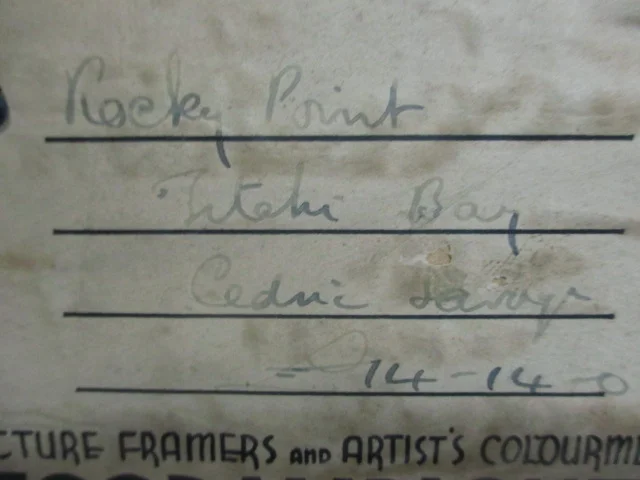 Rocky Point
Titahi Bay
Cedric Savage
= 14-14-0
CTURE FRAMERS AND ARTIST'S COLOURME